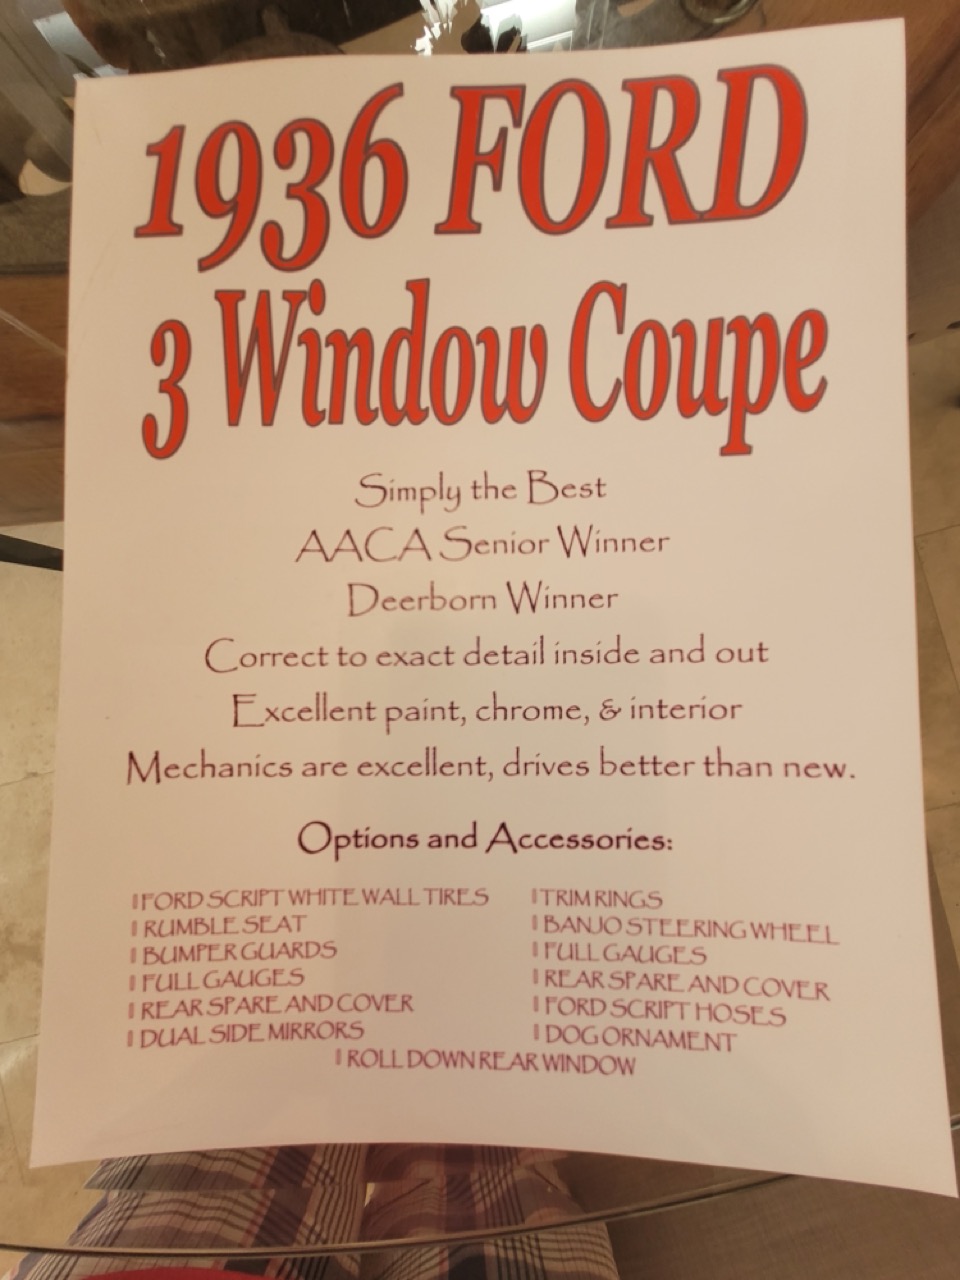 1936 FORD
3 Window Coupe
Simply the Best
AACA Senior Winner
Deerborn Winner
Correct to exact detail inside and out
Excellent paint, chrome, & interior
Mechanics are excellent, drives better than new.
Options and Accessories:
FORD SCRIPT WHITE WALL TIRES
RUMBLE SEAT
BUMPER GUARDS
FULL GAUGES
REAR SPARE AND COVER
DUAL SIDE MIRRORS
TRIM RINGS
BANJO STEERING WHEEL
FULL GAUGES
REAR SPARE AND COVER
FORD SCRIPT HOSES
DOG ORNAMENT
ROLL DOWN REAR WINDOW